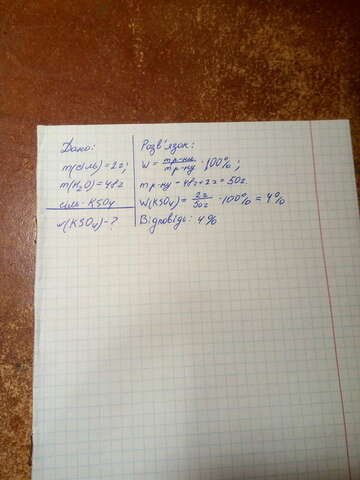 Дано:
m(сіль) = 2г;
m(H₂O) = 48г
сіль - KSO₄
w(KSO₄) - ?
Розв'язок:
W = mр-ни / mр-ну · 100%;
mр-ну = 48г + 2г = 50г
W(KSO₄) = 2г / 50г · 100% = 4%
Відповідь: 4%.